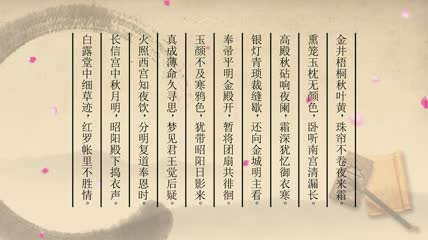 金井梧桐秋叶黄，珠帘不卷夜来霜。
熏笼玉枕无颜色，卧听南宫清漏长。
高殿秋砧响夜阑，霜深犹忆御衣寒。
银灯青琐裁缝歇，还向金城明主看。
奉帚平明金殿开，暂将团扇共徘徊。
玉颜不及寒鸦色，犹带昭阳日影来。
真成薄命久寻思，梦见君王觉后疑。
火照西宫知夜饮，分明复道奉恩时。
长信宫中秋月明，昭阳殿下捣衣声。
白露堂中细草迹，红罗帐里不胜情。